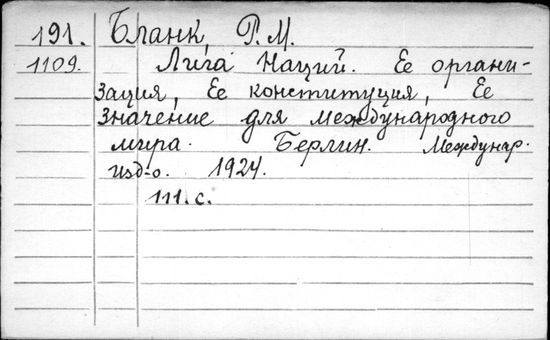 191. Бланк, Р. М.
1109. Лига Наций. Ее органи-
зация, Ее конституция, Ее
значение для международного
мира. Берлин. Междунар.
изд-о. 1924.
111. с.